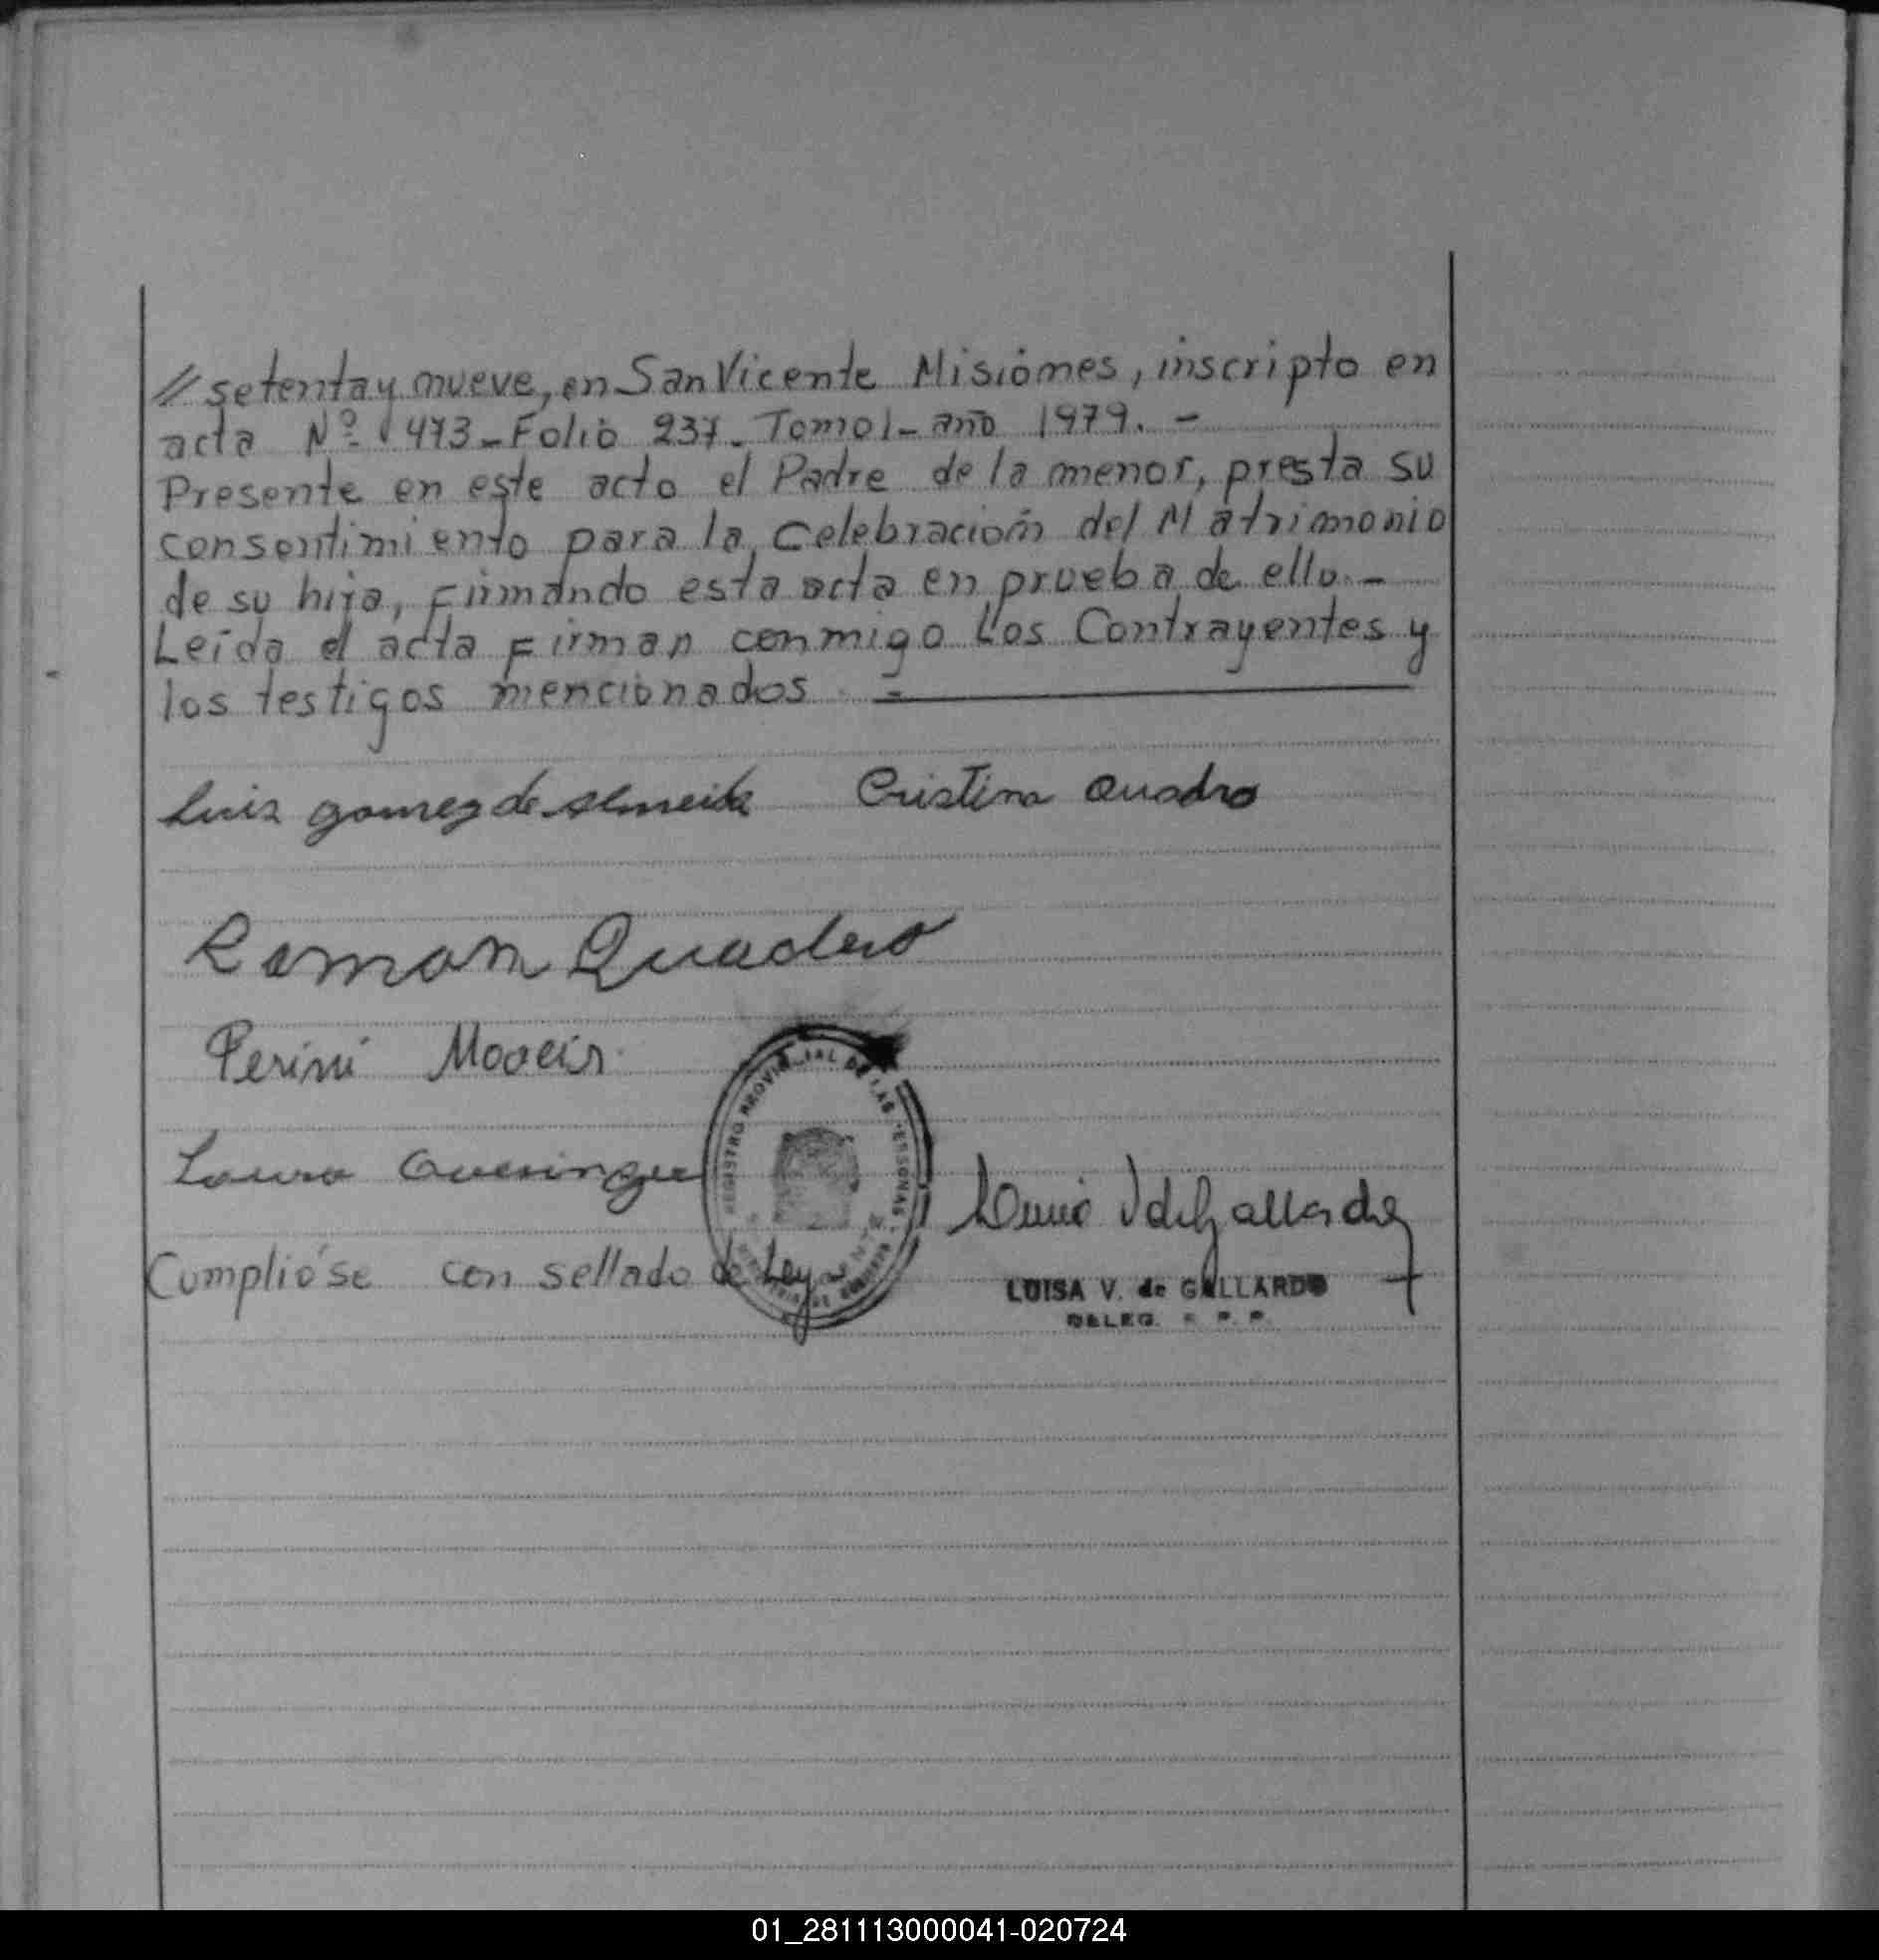 // setenta y nueve, en San Vicente Misiones, inscripto en
acta Nº 473 - Folio 237 - Tomo I - año 1979. -
Presente en este acto el Padre de la menor, presta su
consentimiento para la Celebración del Matrimonio
de su hija, Firmando esta acta en prueba de ello. -
Leída el acta Firman conmigo Los Contrayentes y
los testigos mencionados. -
Luis gomez de almeida Cristina Quadro
Ramon Quadro
Perini Moacir
REGISTRO PROVINCIAL DE LAS PERSONAS
Cumplióse con sellado de Ley
LUISA V. de GALLARDO
DELEG. R. P. P.
01_281113000041-020724